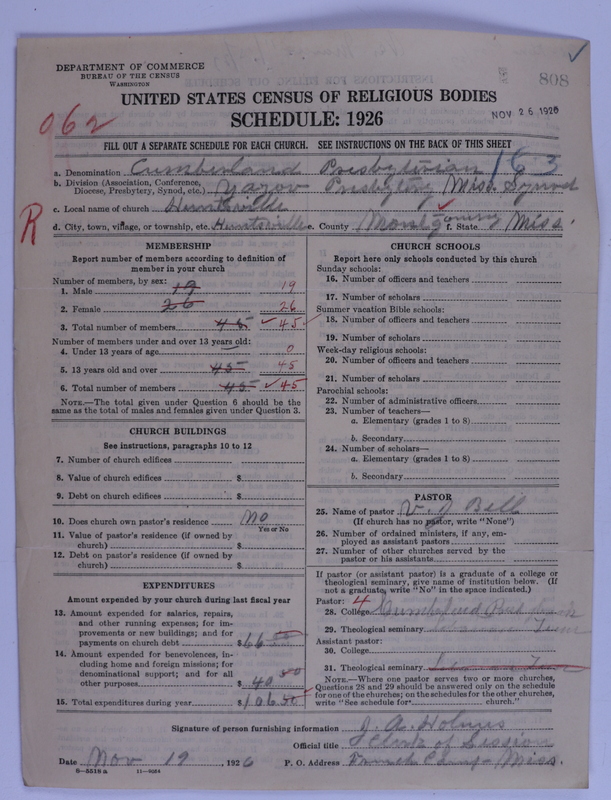 DEPARTMENT OF COMMERCE
BUREAU OF THE CENSUS
WASHINGTON
808
UNITED STATES CENSUS OF RELIGIOUS BODIES
SCHEDULE: 1926
NOV 26 1926
062
FILL OUT A SEPARATE SCHEDULE FOR EACH CHURCH. SEE INSTRUCTIONS ON THE BACK OF THIS SHEET
a. Denomination Cumberland Presbyterian 163
b. Division (Association, Conference, Diocese, Presbytery, Synod, etc.) Yazoo Presbytery Miss. Synod
c. Local name of church Huntsville
R
d. City, town, village, or township, etc. Huntsville e. County Montgomery f. State Miss.
MEMBERSHIP
Report number of members according to definition of
member in your church
Number of members, by sex:
1. Male 19 19
2. Female 26 26
3. Total number of members 45 45
Number of members under and over 13 years old:
4. Under 13 years of age 0
5. 13 years old and over 45 45
6. Total number of members 45 45
NOTE.—The total given under Question 6 should be
same as the total of males and females given under Question 3.
CHURCH BUILDINGS
See instructions, paragraphs 10 to 12
7. Number of church edifices
8. Value of church edifices $
9. Debt on church edifices $
10. Does church own pastor's residence No
Yes or No
11. Value of pastor's residence (if owned by
church) $
12. Debt on pastor's residence (if owned by
church) $
EXPENDITURES
Amount expended by your church during last fiscal year
13. Amount expended for salaries, repairs,
and other running expenses; for im-
provements or new buildings; and for
payments on church debt $66
14. Amount expended for benevolences, in-
cluding home and foreign missions; for
denominational support; and for all
other purposes $ 40
15. Total expenditures during year $106
CHURCH SCHOOLS
Report here only schools conducted by this church
Sunday schools:
16. Number of officers and teachers
17. Number of scholars
Summer vacation Bible schools:
18. Number of officers and teachers
19. Number of scholars
Week-day religious schools:
20. Number of officers and teachers
21. Number of scholars
Parochial schools:
22. Number of administrative officers
23. Number of teachers—
a. Elementary (grades 1 to 8)
b. Secondary
24. Number of scholars—
a. Elementary (grades 1 to 8)
b. Secondary
PASTOR
25. Name of pastor V. J Bell
(If church has no pastor, write "None")
26. Number of ordained ministers, if any, em-
ployed as assistant pastors
27. Number of other churches served by the
pastor or his assistants
If pastor (or assistant pastor) is a graduate of a college or
theological seminary, give name of institution below. (If
not a graduate, write "No" in the space indicated.)
Pastor: 4
28. College Cumberland
29. Theological seminary Tenn
Assistant pastor:
30. College
31. Theological seminary
NOTE.—Where one pastor serves two or more churches,
Questions 28 and 29 should be answered only on the schedule
for one of the churches; on the schedules for the other churches,
write "See schedule for church."
Signature of person furnishing information J. A. Holmes
Official title Clerk of Session
Date Nov 19, 1926 P. O. Address French Camp Miss.
6—5518 a 11—9024